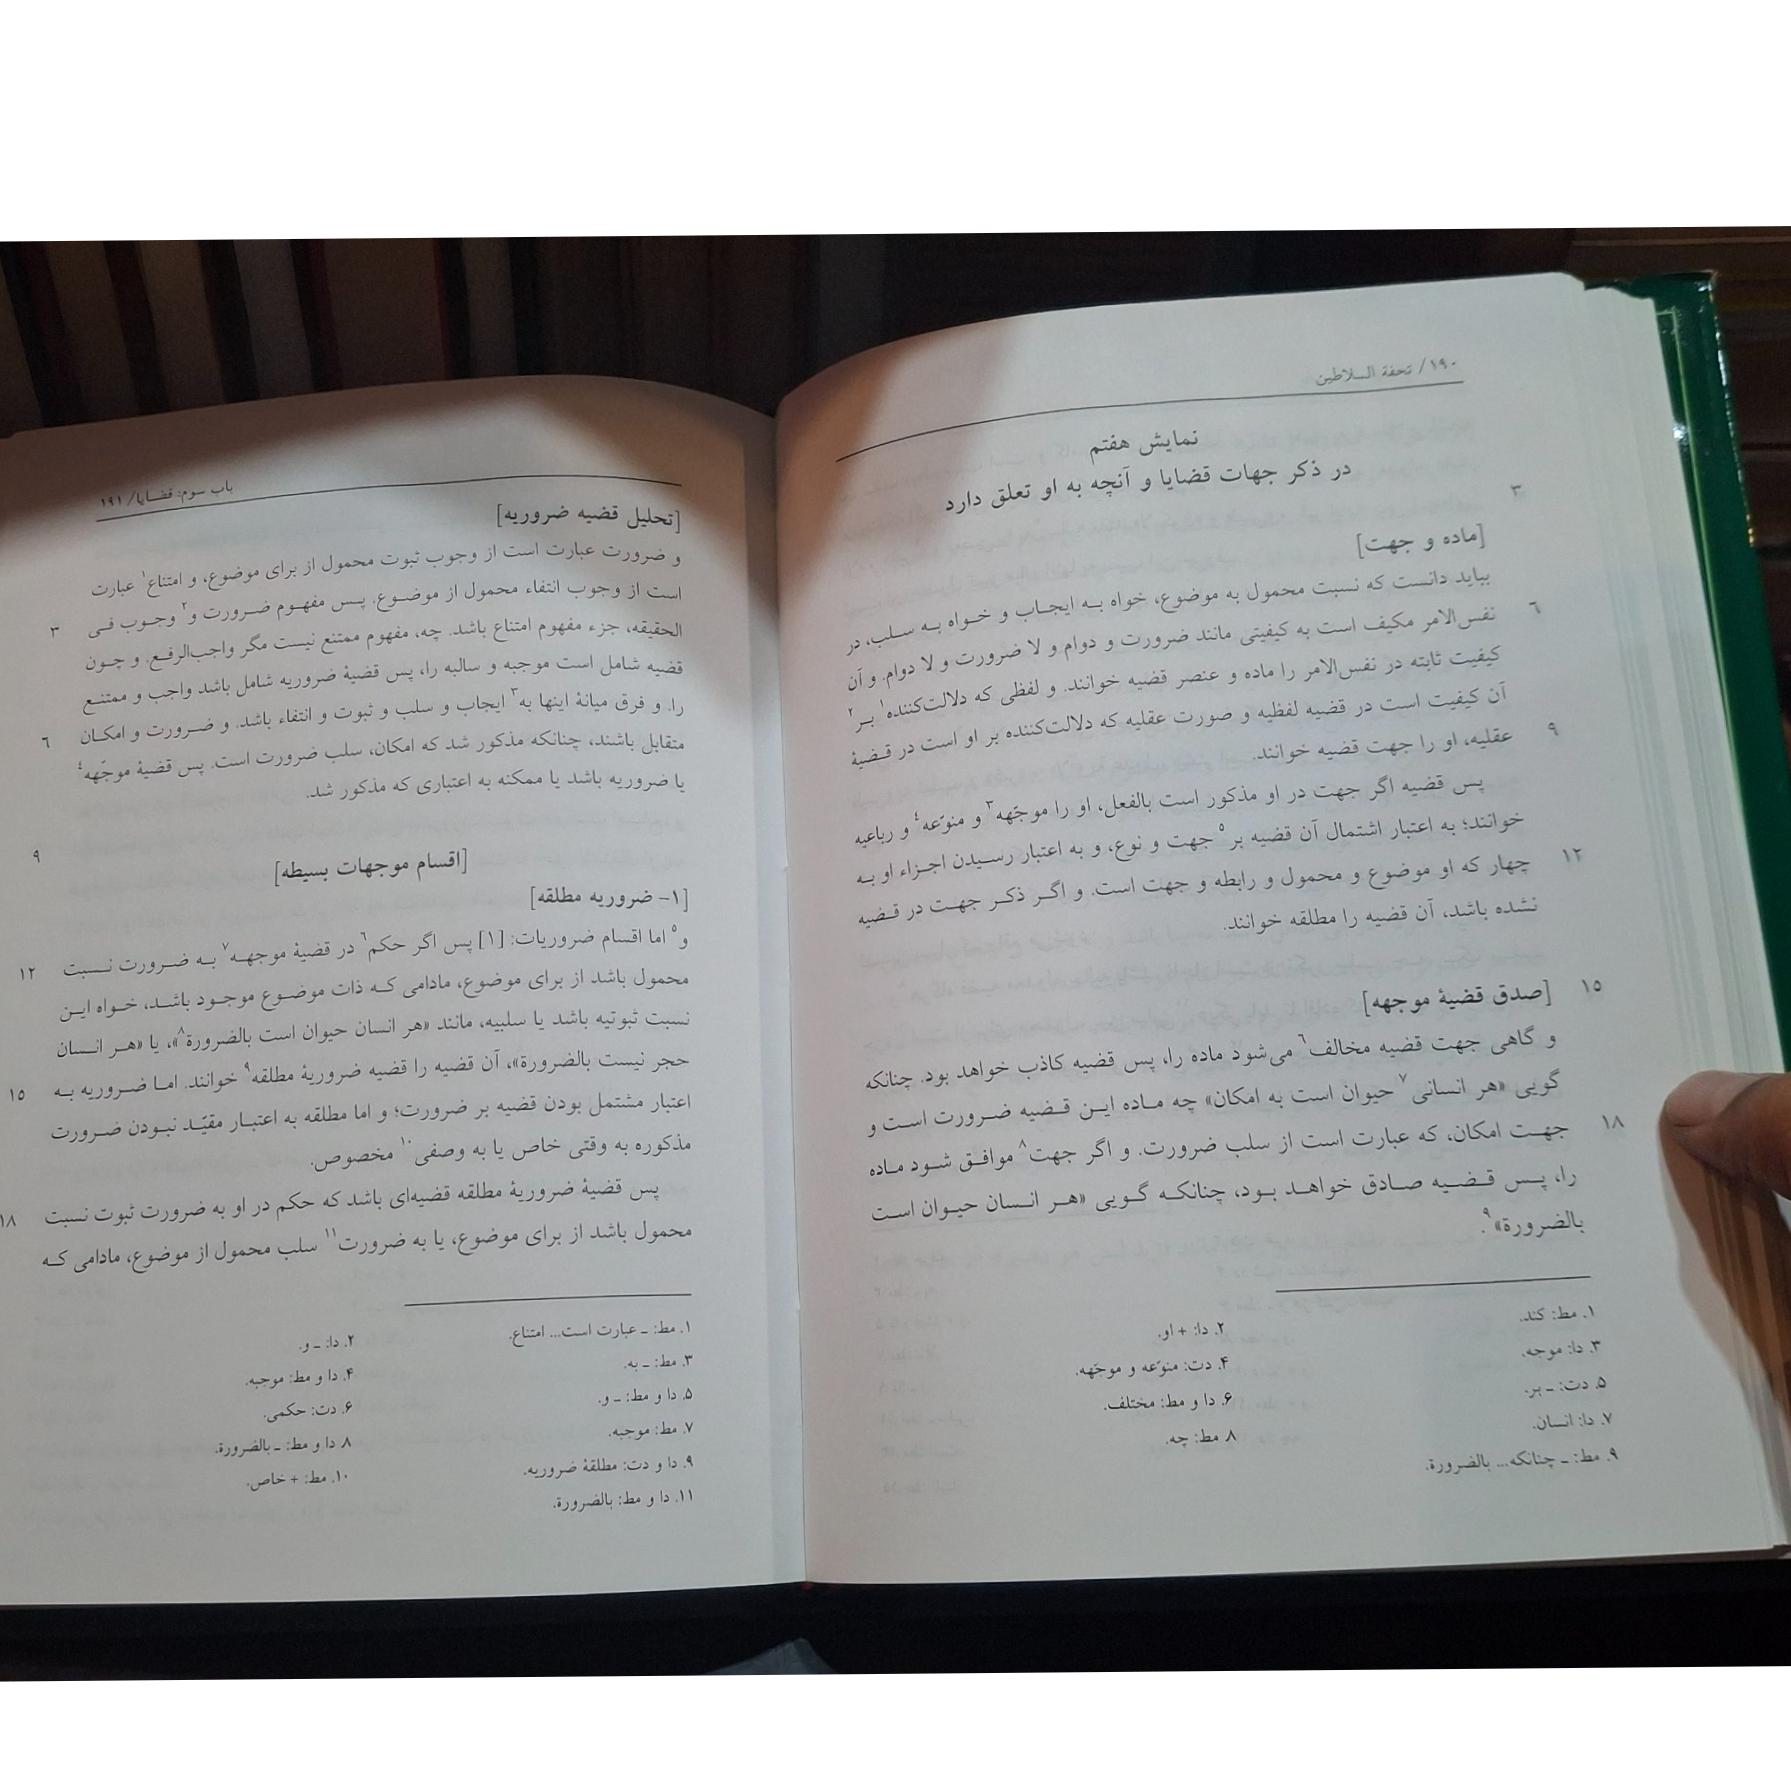 ۱۹۰/ تحفة السلاطین
نمایش هفتم
در ذکر جهات قضایا و آنچه به او تعلق دارد
۳
[ماده و جهت]
بباید دانست که نسبت محمول به موضوع، خواه بـه ایجـاب و خـواه بـه سـلب، در
نفس‌الامر مکیف است به کیفیتی مانند ضرورت و دوام و لا ضرورت و لا دوام. و آن
۶
کیفیت ثابته در نفس‌الامر را ماده و عنصر قضیه خوانند. و لفظی که دلالت‌کننده۱ بـر۲
آن کیفیت است در قضیه لفظیه و صورت عقلیه که دلالت‌کننده بر او است در قـضیۀ
عقلیه، او را جهت قضیه خوانند.
۹
پس قضیه اگر جهت در او مذکور است بالفعل، او را موجّهه۳ و منوّعه۴ و رباعیه
خوانند؛ به اعتبار اشتمال آن قضیه بر۵ جهت و نوع، و به اعتبار رسـیدن اجـزاء او بـه
چهار که او موضوع و محمول و رابطه و جهت است. و اگـر ذکـر جهـت در قـضیه
۱۲
نشده باشد، آن قضیه را مطلقه خوانند.
[صدق قضیۀ موجهه]
۱۵
و گاهی جهت قضیه مخالف۶ می‌شود ماده را، پس قضیه کاذب خواهد بود. چنانکه
گویی «هر انسانی۷ حیوان است به امکان» چه مـاده ایـن قـضیه ضـرورت اسـت و
جهـت امکان، که عبارت است از سلب ضرورت. و اگر جهت۸ موافـق شـود مـاده
۱۸
را، پـس قـضـیه صـادق خواهـد بـود، چنانکـه گـویی «هـر انـسان حیـوان اسـت
بالضرورة»۹.
۱. مط: کند.
۲. دا: + او.
۳. دا: موجه.
۴. دت: منوّعه و موجّهه.
۵. دت: ـ بر.
۶. دا و مط: مختلف.
۷. دا: انسان.
۸ مط: چه.
۹. مط: ـ چنانکه... بالضرورة.
باب سوم: قضایا/ ۱۹۱
[تحلیل قضیه ضروریه]
و ضرورت عبارت است از وجوب ثبوت محمول از برای موضوع، و امتناع۱ عبارت
است از وجوب انتفاء محمول از موضـوع. پـس مفهـوم ضـرورت و۲ وجـوب فـی
الحقیقه، جزء مفهوم امتناع باشد. چه، مفهوم ممتنع نیست مگر واجب‌الرفـع. و چـون
۳
قضیه شامل است موجبه و سالبه را، پس قضیۀ ضروریه شامل باشد واجب و ممتنـع
را. و فرق میانۀ اینها به۳ ایجاب و سلب و ثبوت و انتفاء باشد. و ضـرورت و امکـان
متقابل باشند، چنانکه مذکور شد که امکان، سلب ضرورت است. پس قضیۀ موجّهه۴
۶
یا ضروریه باشد یا ممکنه به اعتباری که مذکور شد.
[اقسام موجهات بسیطه]
۹
[۱- ضروریه مطلقه]
و۵ اما اقسام ضروریات: [۱] پس اگر حکم۶ در قضیۀ موجهـه۷ بـه ضـرورت نسـبت
۱۲
محمول باشد از برای موضوع، مادامی کـه ذات موضـوع موجـود باشـد، خـواه ایـن
نسبت ثبوتیه باشد یا سلبیه، مانند «هر انسان حیوان است بالضرورة۸»، یا «هـر انـسان
حجر نیست بالضرورة»، آن قضیه را قضیه ضروریۀ مطلقه۹ خوانند. امـا ضـروریه بـه
۱۵
اعتبار مشتمل بودن قضیه بر ضرورت؛ و اما مطلقه به اعتبـار مقیّـد نبـودن ضـرورت
مذکوره به وقتی خاص یا به وصفی۱۰ مخصوص.
پس قضیۀ ضروریۀ مطلقه قضیه‌ای باشد که حکم در او به ضرورت ثبوت نسبت
۱۸
محمول باشد از برای موضوع، یا به ضرورت۱۱ سلب محمول از موضوع، مادامی کـه
۱. مط: ـ عبارت است... امتناع.
۲. دا: ـ و.
۳. مط: ـ به.
۴. دا و مط: موجبه.
۵. دا و مط: ـ و.
۶. دت: حکمی.
۷. مط: موجبه.
۸ دا و مط: ـ بالضرورة.
۹. دا و دت: مطلقۀ ضروریه.
۱۰. مط: + خاص.
۱۱. دا و مط: بالضرورة.